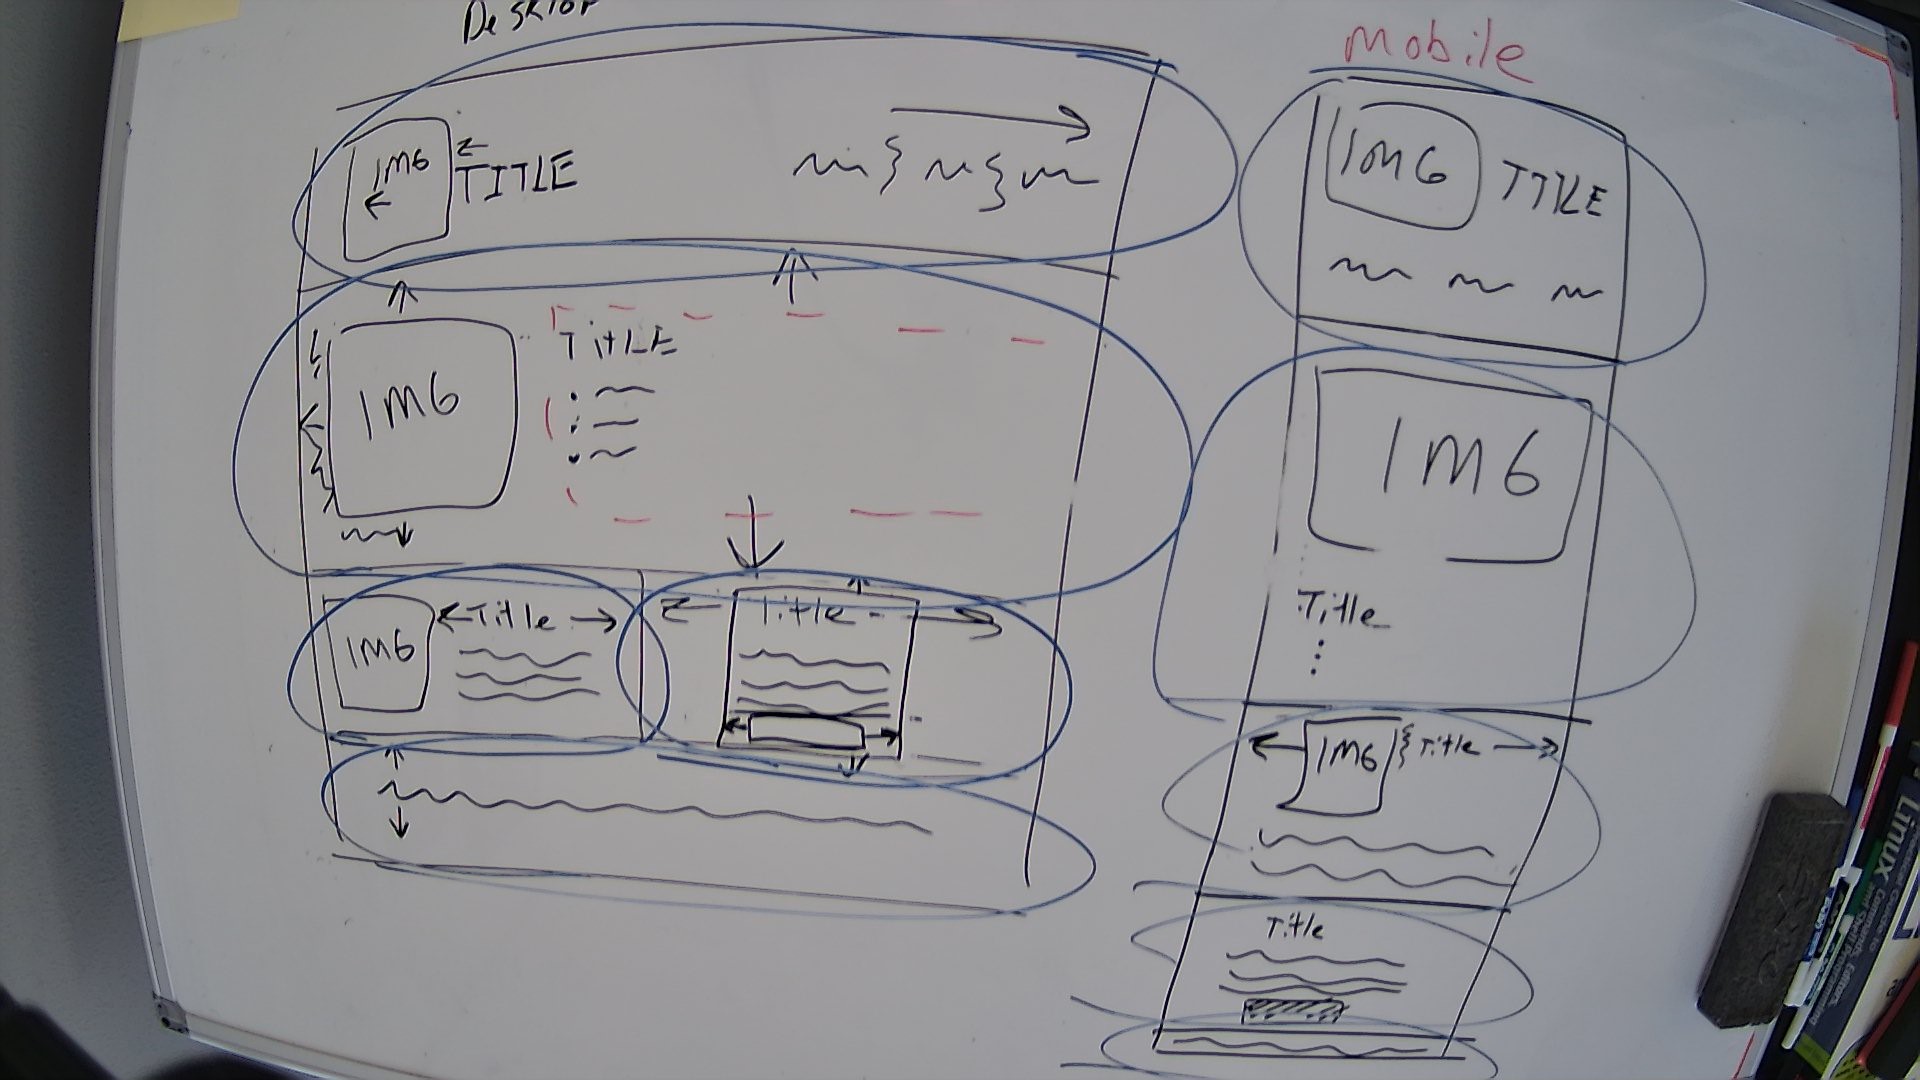 Desktop
IMG
TITLE
IMG
TitLE
IMG
Title
Title
mobile
IMG
TITLE
IMG
Title
IMG
Title
Title
Linux